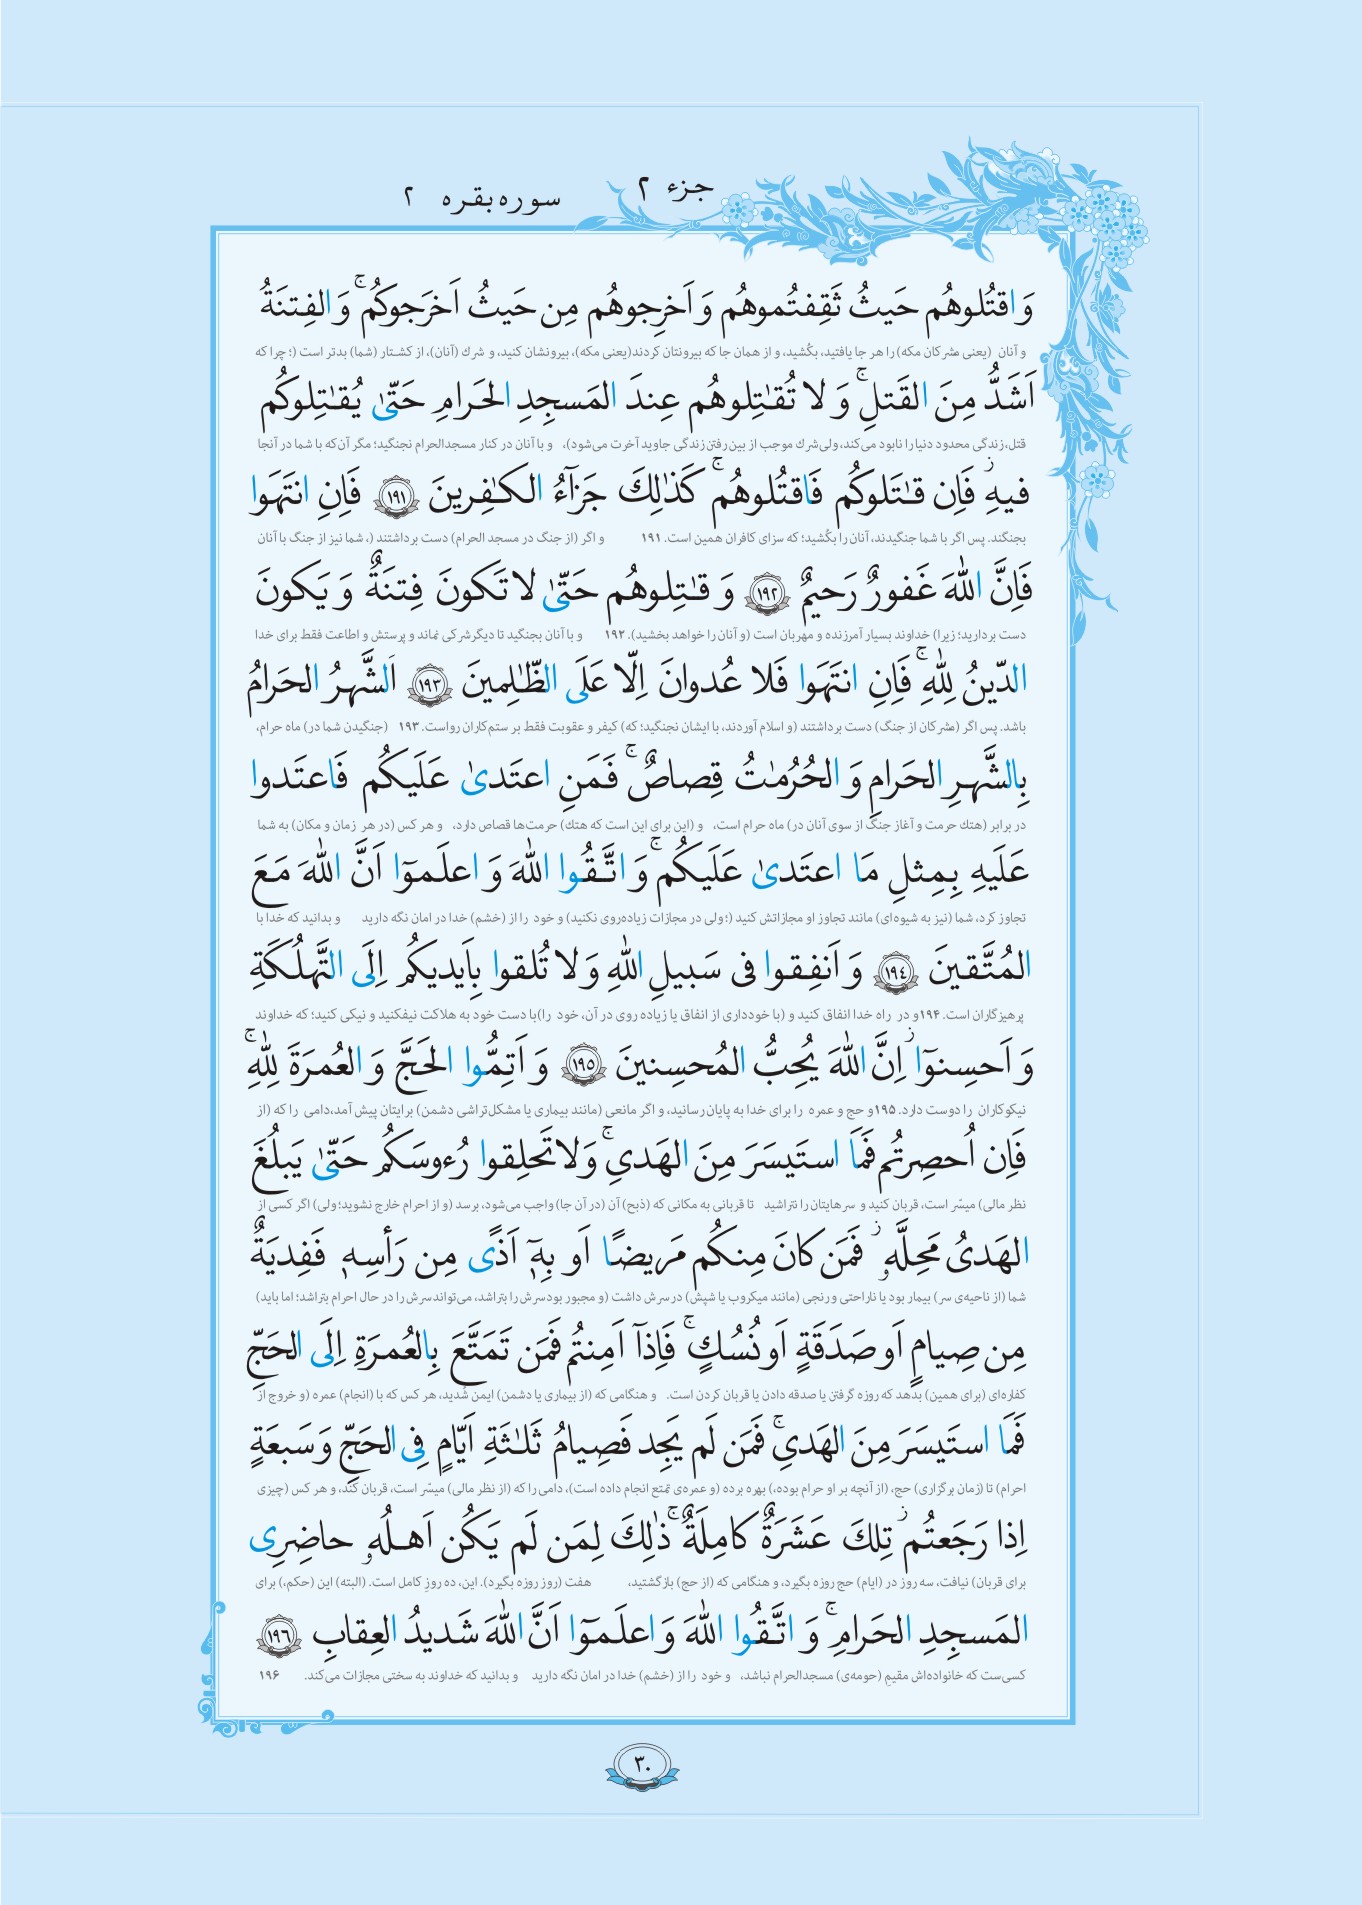 جزء ۲
سوره بقره ۲
وَ اقتُلوهُم حَيثُ ثَقِفتُموهُم وَ اَخرِجوهُم مِن حَيثُ اَخرَجوكُم ۚ وَ الفِتنَةُ
و آنان (یعنی مشرکان مکه) را هر جا یافتید، بکُشید، و از همان جا که بیرونتان کردند(یعنی مکه)، بیرونشان کنید، و شرک (آنان)، از کشـتار (شما) بدتر است (؛ چرا که
اَشَدُّ مِنَ القَتلِ ۚ وَ لا تُقـٰتِلوهُم عِندَ المَسجِدِ الحَـرامِ حَتّىٰ يُقـٰتِلوكُم
قتل، زندگی محدود دنیا را نابود می‌کند، ولی شرک موجب از بین رفتن زندگی جاوید آخرت می‌شود)، و با آنان در کنار مسجدالحرام نجنگید؛ مگر آن‌که با شما در آنجا
فيهِ ۖ فَاِن قـٰتَلوكُم فَاقتُلوهُم ۚ كَذٰلِكَ جَزآءُ الكـٰفِرينَ ﴿١٩١﴾ فَاِنِ انتَهَوا
بجنگند. پس اگر با شما جنگیدند، آنان را بکُشید؛ که سزای کافران همین است. ۱۹۱ و اگر (از جنگ در مسجد الحرام) دست برداشتند (، شما نیز از جنگ با آنان
فَاِنَّ اللّٰهَ غَفورٌ رَحيمٌ ﴿١٩٢﴾ وَ قـٰتِلوهُم حَتّىٰ لا تَكونَ فِتنَةٌ وَ يَكونَ
دست بردارید؛ زیرا) خداوند بسیار آمرزنده و مهربان است (و آنان را خواهد بخشید). ۱۹۲ و با آنان بجنگید تا دیگر شرکی نماند و پرستش و اطاعت فقط برای خدا
الدّينُ لِلّٰهِ ۚ فَاِنِ انتَهَوا فَلا عُدوانَ اِلّا عَلَى الظّـٰلِمينَ ﴿١٩٣﴾ اَلشَّهرُ الحَرامُ
باشد. پس اگر (مشرکان از جنگ) دست برداشتند (و اسلام آوردند، با ایشان نجنگید؛ که) کیفر و عقوبت فقط بر ستم‌کاران رواست. ۱۹۳ (جنگیدن شما در) ماه حرام،
بِالشَّهرِ الحَرامِ وَ الحُرُمـٰتُ قِصاصٌ ۚ فَمَنِ اعتَدىٰ عَلَيكُم فَاعتَدوا
در برابر (هتک حرمت و آغاز جنگ از سوی آنان در) ماه حرام است، و (این برای این است که هتک) حرمت‌ها قصاص دارد، و هر کس (در هر زمان و مکان) به شما
عَلَيهِ بِمِثلِ مَا اعتَدىٰ عَلَيكُم ۚ وَ اتَّقُوا اللّٰهَ وَ اعلَموٓا اَنَّ اللّٰهَ مَعَ
تجاوز کرد، شما (نیز به شیوه‌ای) مانند تجاوز او مجازاتش کنید (؛ ولی در مجازات زیاده‌روی نکنید) و خود را از (خشم) خدا در امان نگه دارید و بدانید که خدا با
المُتَّقينَ ﴿١٩٤﴾ وَ اَنفِقوا فى سَبيلِ اللّٰهِ وَ لا تُلقوا بِاَيديكُم اِلَى التَّهلُكَةِ
پرهیزگاران است. ۱۹۴ و در راه خدا انفاق کنید و (با خودداری از انفاق یا زیاده روی در آن، خود را) با دست خود به هلاکت نیفکنید و نیکی کنید؛ که خداوند
وَ اَحسِنوٓا ۛ اِنَّ اللّٰهَ يُحِبُّ المُحسِنينَ ﴿١٩٥﴾ وَ اَتِمُّوا الحَجَّ وَ العُمرَةَ لِلّٰهِ ۚ
نیکوکاران را دوست دارد. ۱۹۵ و حج و عمره را برای خدا به پایان رسانید، و اگر مانعی (مانند بیماری یا مشکل‌تراشی دشمن) برایتان پیش آمد، دامی را که (از
فَاِن اُحصِرتُم فَمَا استَيسَرَ مِنَ الهَدىِ ۚ وَ لا تَحلِقوا رُءوسَكُم حَتّىٰ يَبلُغَ
نظر مالی) میسّر است، قربان کنید و سرهایتان را نتراشید تا قربانی به مکانی که (ذبح) آن (در آن جا) واجب می‌شود، برسد (و از احرام خارج نشوید؛ ولی) اگر کسی از
الهَدىُ مَحِلَّهٗ ۚ فَمَن كانَ مِنكُم مَريضًا اَو بِهٖٓ اَذًى مِن رَأسِهٖ فَفِديَةٌ
شما (از ناحیه‌ی سر) بیمار بود یا ناراحتی و رنجی (مانند میکروب یا شپش) در سرش داشت (و مجبور بود سرش را بتراشد، می‌تواند سرش را در حال احرام بتراشد؛ اما باید)
مِن صِيامٍ اَو صَدَقَةٍ اَو نُسُكٍ ۚ فَاِذآ اَمِنتُم فَمَن تَمَتَّعَ بِالعُمرَةِ اِلَى الحَجِّ
کفاره‌ای (برای همین) بدهد که روزه گرفتن یا صدقه دادن یا قربان کردن است. و هنگامی که (از بیماری یا دشمن) ایمن شُدید، هر کس که با (انجام) عمره (و خروج از
فَمَا استَيسَرَ مِنَ الهَدىِ ۚ فَمَن لَم يَجِد فَصِيامُ ثَلـٰثَةِ اَيّامٍ فِى الحَجِّ وَ سَبعَةٍ
احرام) تا (زمان برگزاری) حج، (از آنچه بر او حرام بوده،) بهره برده (و عمره‌ی تمتع انجام داده است)، دامی را که (از نظر مالی) میسّر است، قربان کُند، و هر کس (چیزی
اِذا رَجَعتُم ۗ تِلكَ عَشَرَةٌ كامِلَةٌ ۚ ذٰلِكَ لِمَن لَم يَكُن اَهـلُهٗ حاضِرِى
برای قربان) نیافت، سه روز در (ایام) حج روزه بگیرد، و هنگامی که (از حج) بازگشتید، هفت (روز روزه بگیرد). این، ده روز کامل است. (البته) این (حکم،) برای
المَسجِدِ الحَرامِ ۚ وَ اتَّقُوا اللّٰهَ وَ اعلَموٓا اَنَّ اللّٰهَ شَديدُ العِقابِ ﴿١٩٦﴾
کسی‌ست که خانواده‌اش مقیم (حومه‌ی) مسجدالحرام نباشد، و خود را از (خشم) خدا در امان نگه دارید و بدانید که خداوند به سختی مجازات می‌کند. ۱۹۶
۳۰